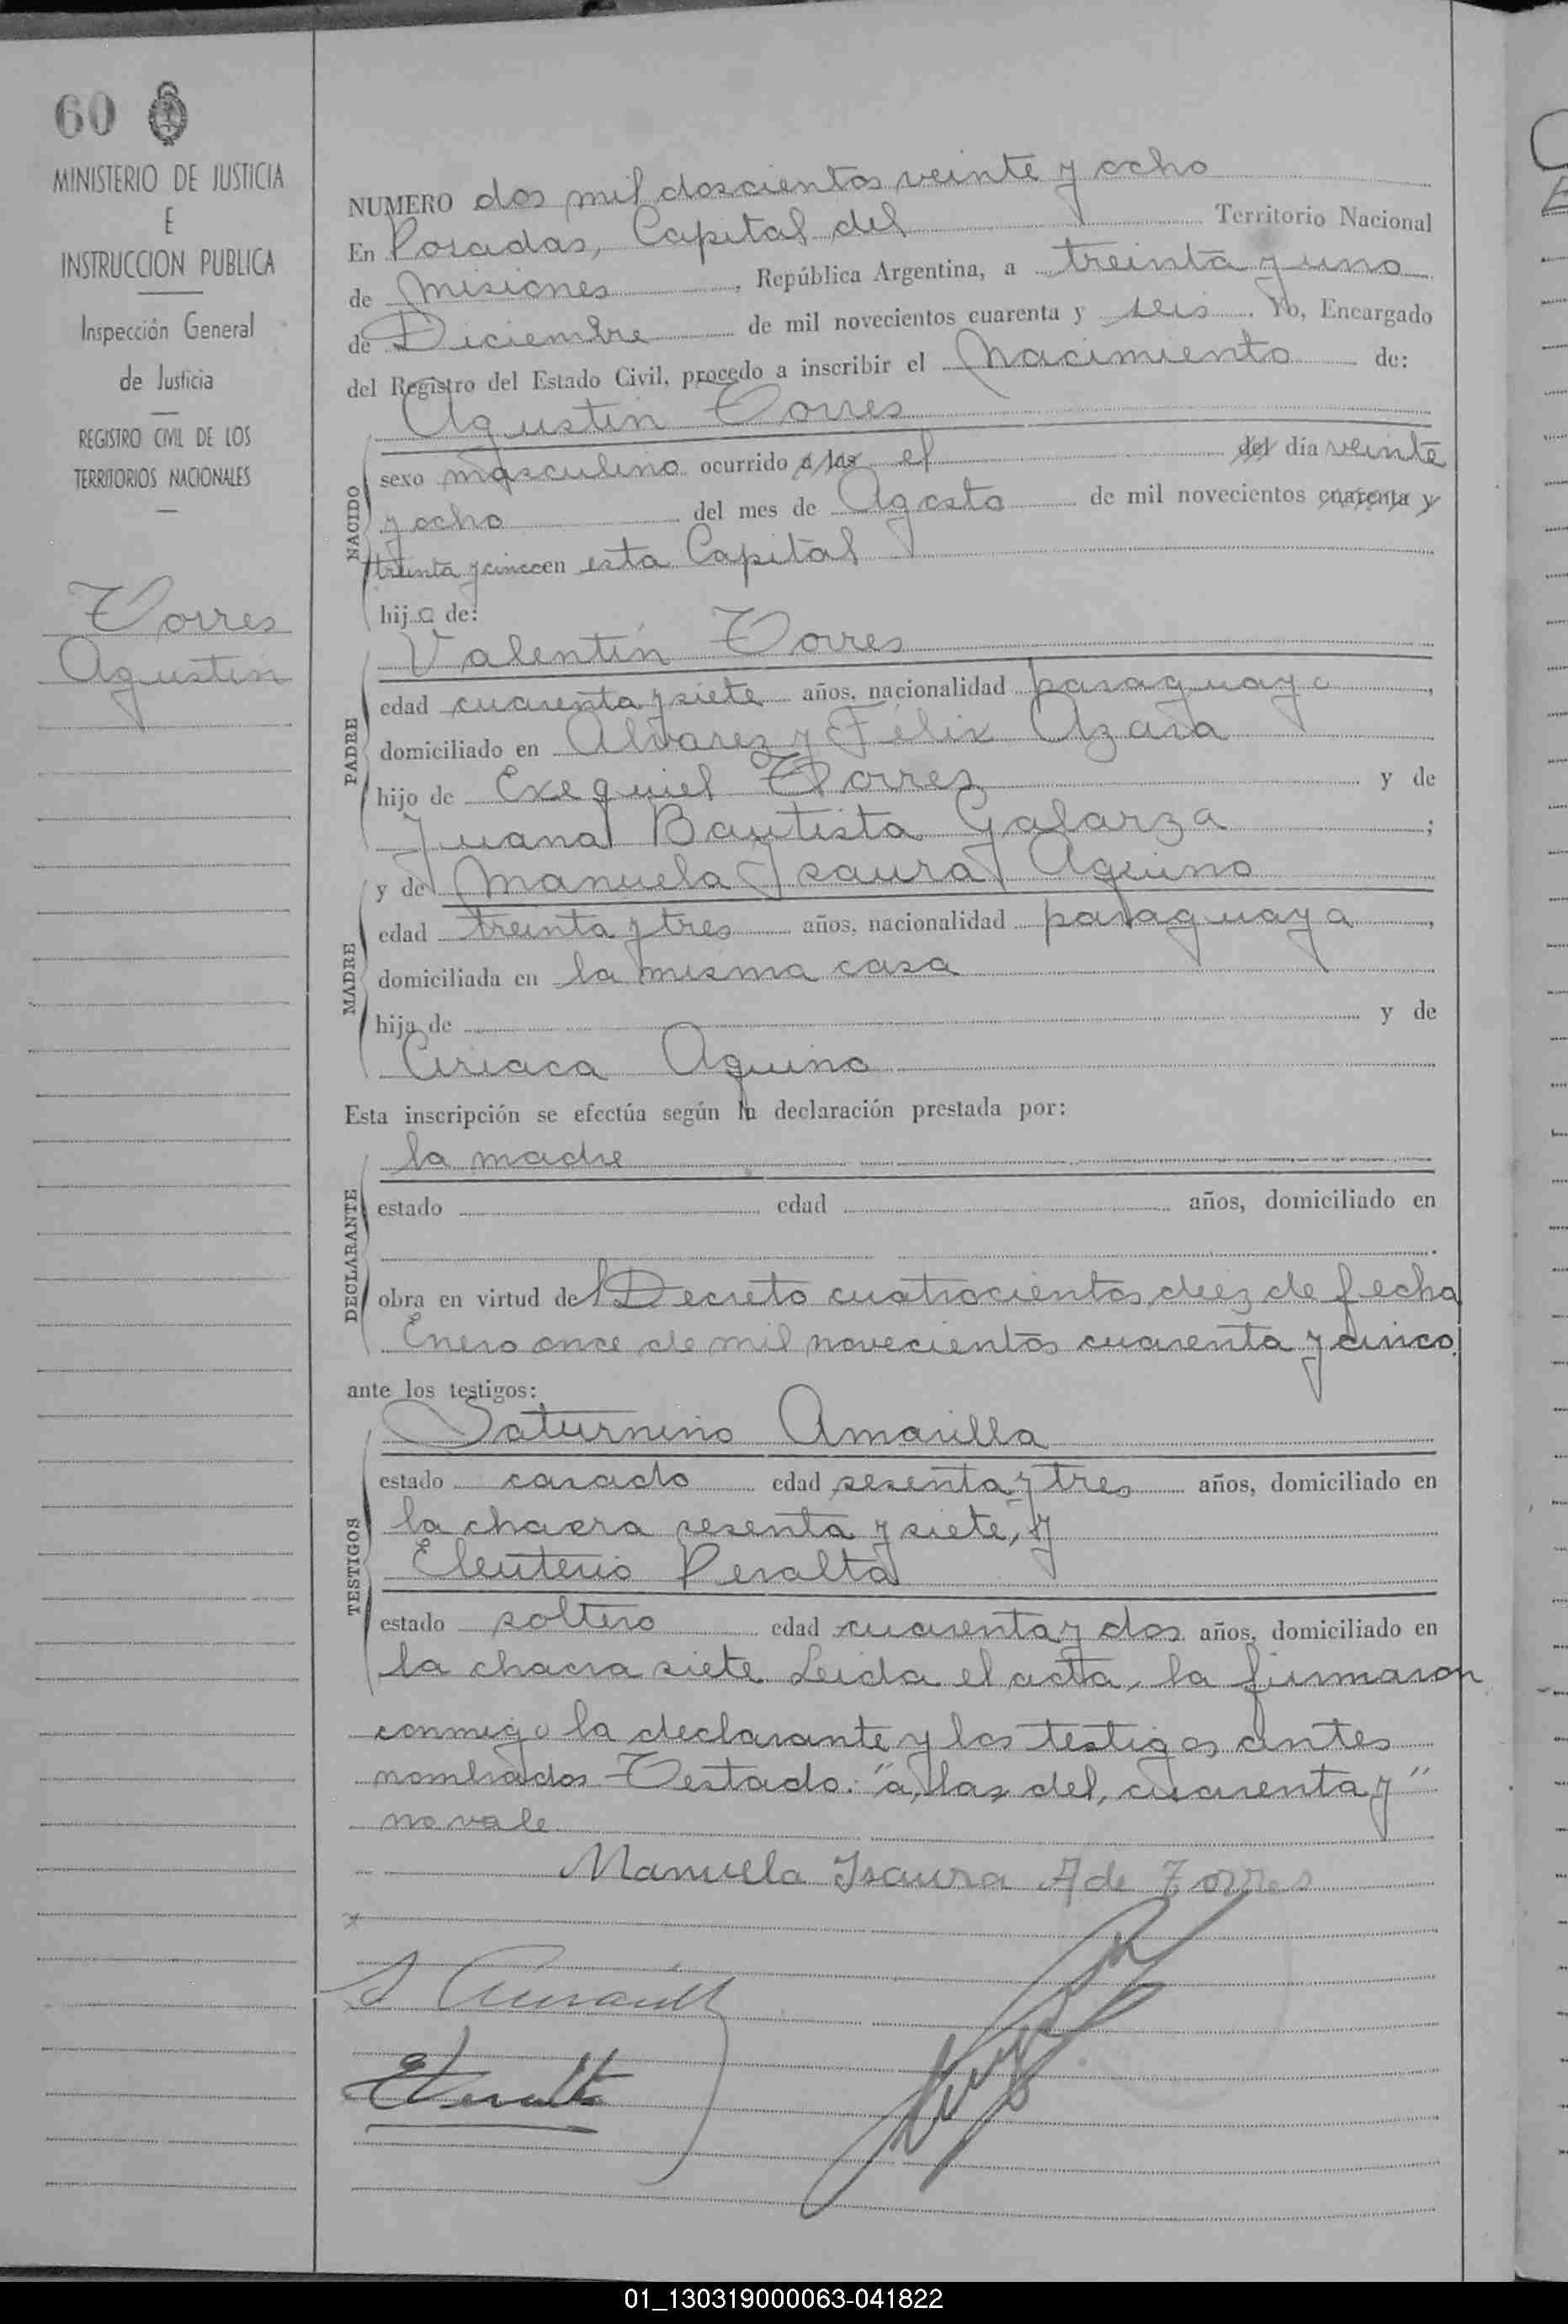 60
MINISTERIO DE JUSTICIA
E
INSTRUCCION PUBLICA
Inspección General
de Justicia
REGISTRO CIVIL DE LOS
TERRITORIOS NACIONALES
Torres
Agustin
NUMERO dos mil doscientos veinte y ocho
En Posadas, Capital del Territorio Nacional
de Misiones, República Argentina, a treinta y uno
de Diciembre de mil novecientos cuarenta y seis. Yo, Encargado
del Registro del Estado Civil, procedo a inscribir el Nacimiento de:
Agustin Torres
NACIDO
sexo masculino ocurrido a las el del día veinte
y ocho del mes de Agosto de mil novecientos cuarenta y
treinta y cinco en esta Capital
hijo de:
Valentin Torres
PADRE
edad cuarenta y siete años, nacionalidad paraguayo,
domiciliado en Alvarez y Félix Azara
hijo de Exequiel Torres y de
Juana Bautista Galarza;
y de Manuela Isaura Aquino
MADRE
edad treinta y tres años, nacionalidad paraguaya,
domiciliada en la misma casa
hija de y de
Ciriaca Aquino
Esta inscripción se efectúa según la declaración prestada por:
la madre
DECLARANTE
estado edad años, domiciliado en
obra en virtud del Decreto cuatrocientos diez de fecha
Enero once de mil novecientos cuarenta y cinco
ante los testigos:
Saturnino Amarilla
TESTIGOS
estado casado edad sesenta y tres años, domiciliado en
la chacra sesenta y siete, y
Eleuterio Peralta
estado soltero edad cuarenta y dos años, domiciliado en
la chacra siete. Leida el acta, la firmaron
conmigo la declarante y los testigos antes
nombrados. Testado: "a, las, del, cuarenta y"
no vale
Manuela Isaura A de Torres
S Amarill
EPeralta
01_130319000063-041822